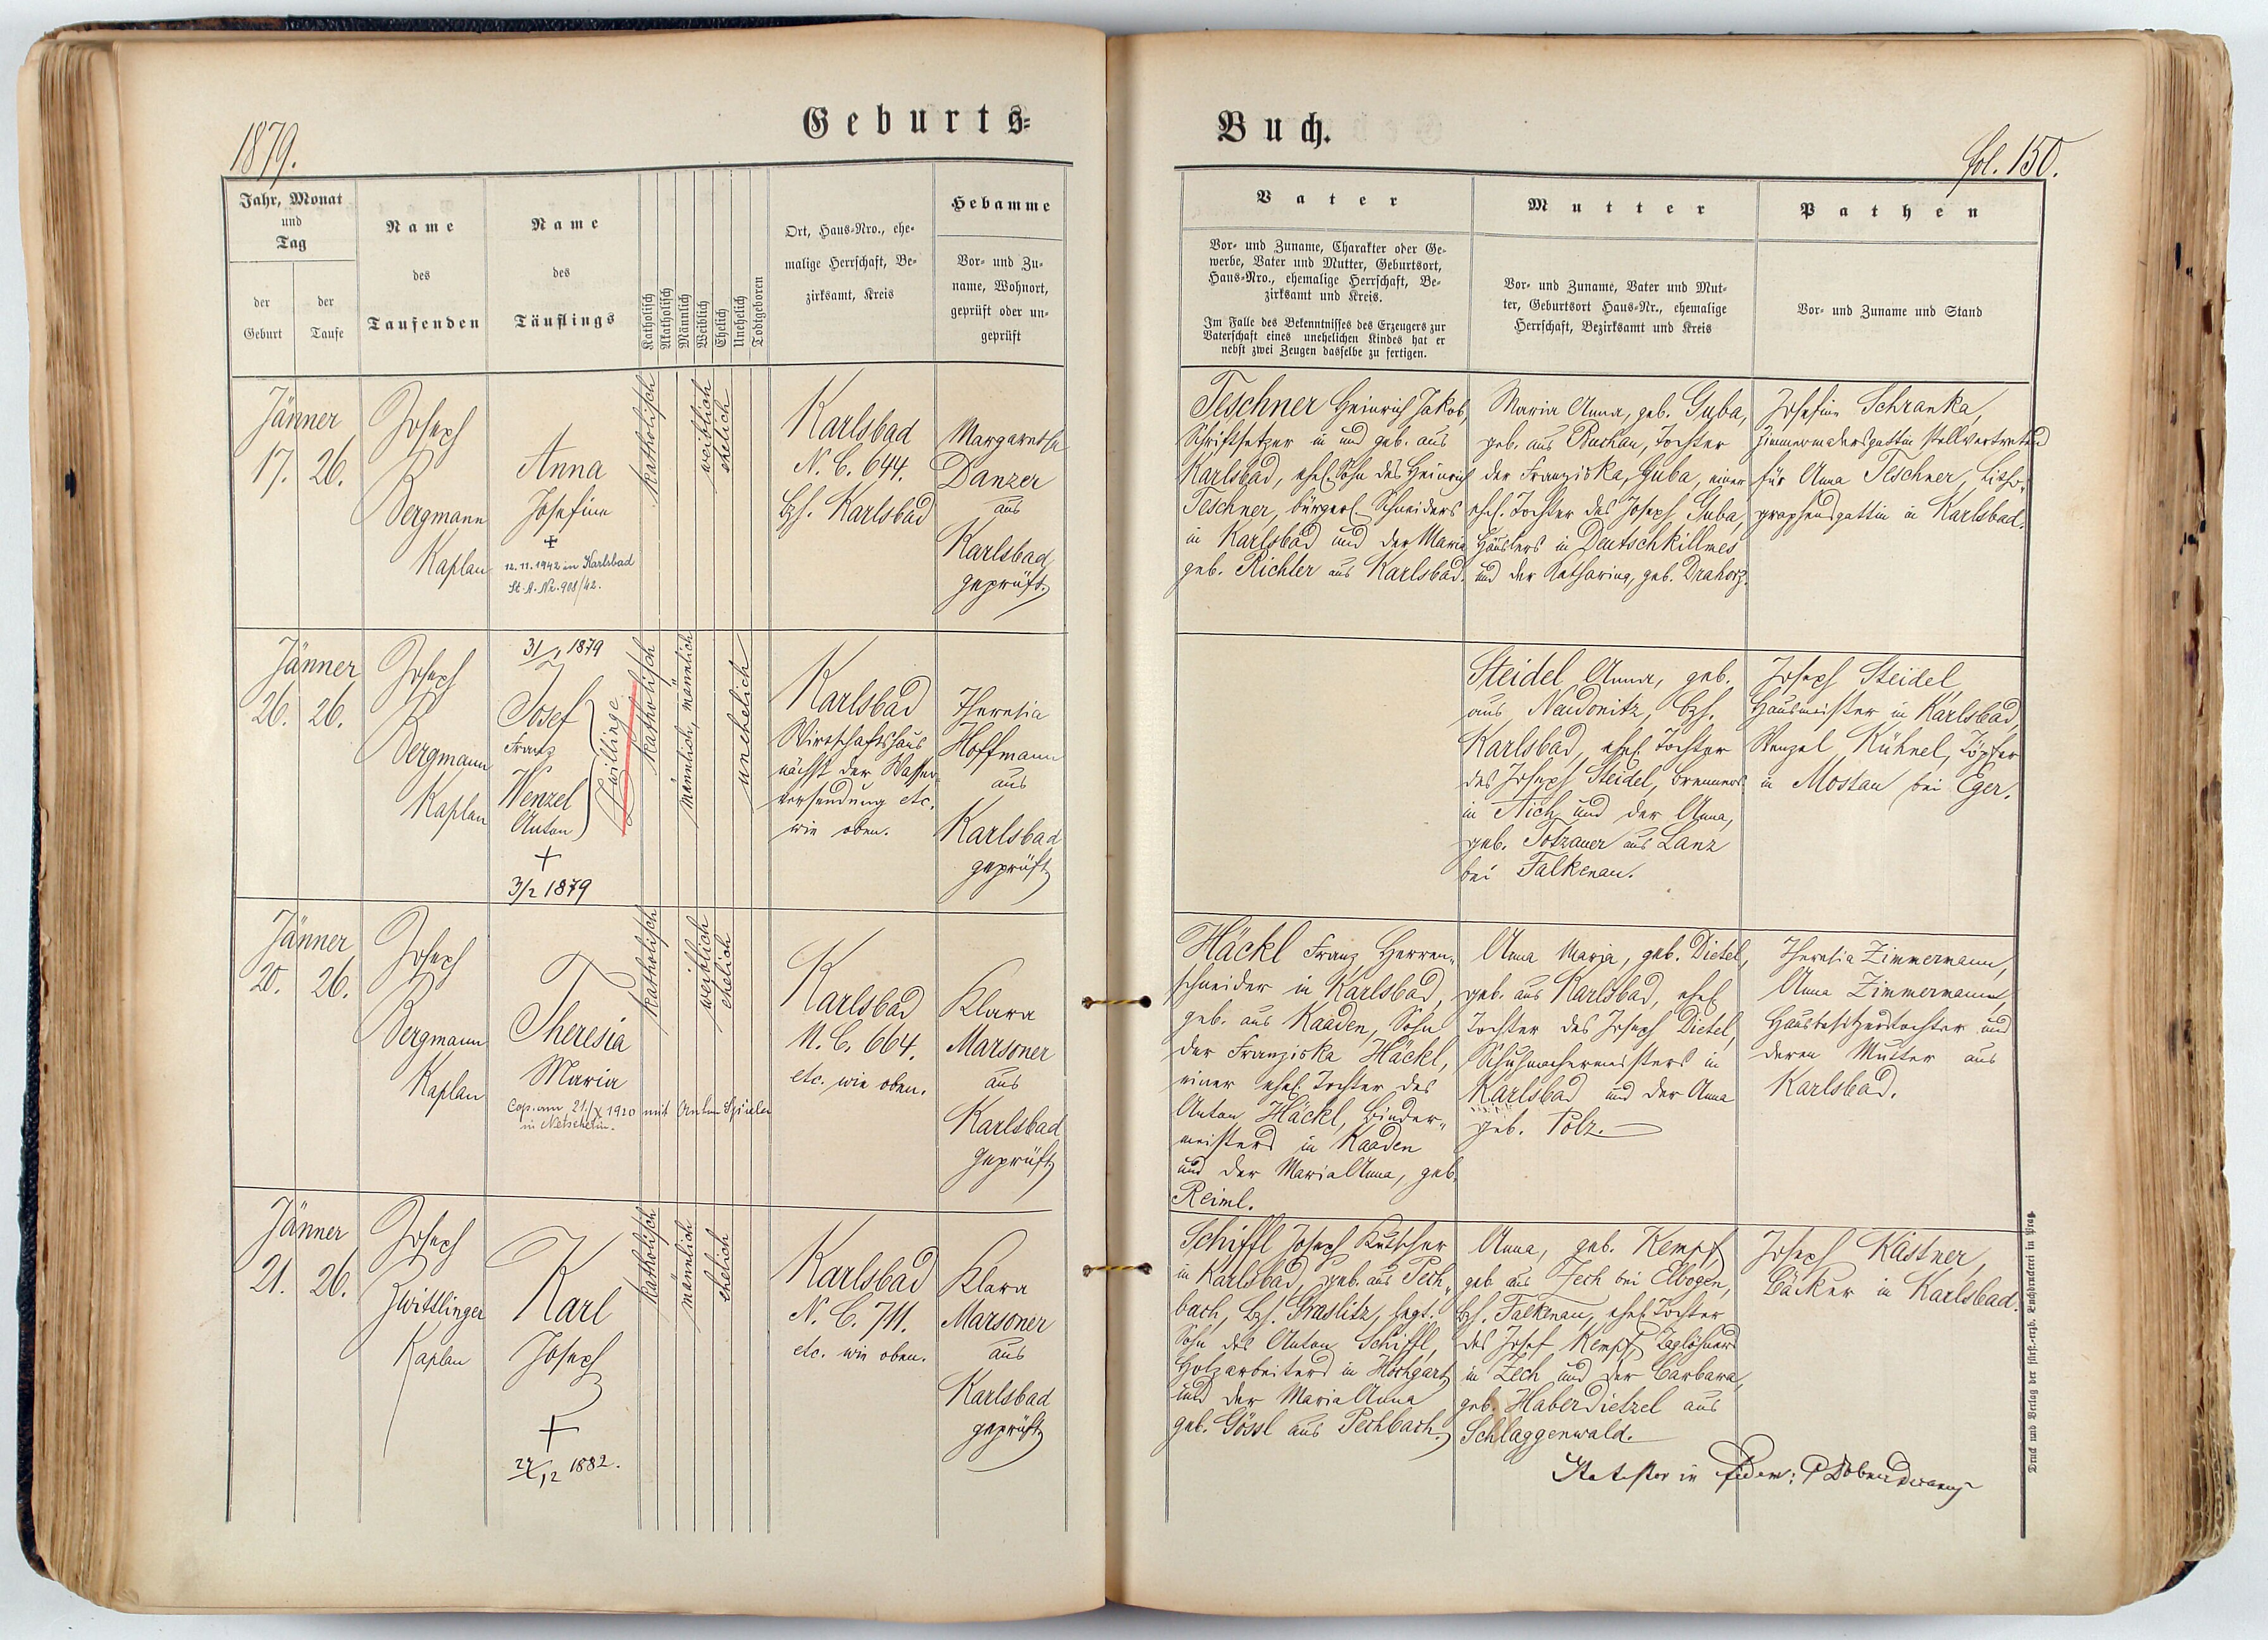 1879.
Geburts=
Jahr, Monat
und
Tag
der
Geburt
der
Taufe
Name
des
Taufenden
Name
des
Täuflings
Katholisch
Akatholisch
Männlich
Weiblich
Ehelich
Unehelich
Todtgeboren
Ort, Haus=Nro., ehe=
malige Herrschaft, Be=
zirksamt, Kreis
Hebamme
Vor= und Zu=
name, Wohnort,
geprüft oder un=
geprüft
Jänner
17. 26.
Joseph
Bergmann
Kaplan
Anna
Josefine
+
12.11.1942 in Karlsbad
St. A. Nr. 908/42.
katholisch
weiblich
ehelich
Karlsbad
N. C. 644.
Bzh. Karlsbad
Margaretha
Danzer
aus
Karlsbad
geprüft.
Jänner
26. 26.
Joseph
Bergmann
Kaplan
31/1 1879
Josef
Franz
Wenzel
Anton
Zwillinge
+
3/2 1879
katholisch
männlich, männlich
unehelich
Karlsbad
Wirthschaftshaus
nächst der Wasser=
versendung etc.
wie oben.
Theresia
Hoffmann
aus
Karlsbad
geprüft
Jänner
20. 26.
Joseph
Bergmann
Kaplan
Theresia
Maria
Cop. am 21./X 1920 mit Anton Spieler
in Netschetin.
katholisch
weiblich
ehelich
Karlsbad
N. C. 664.
etc. wie oben.
Klara
Marsoner
aus
Karlsbad
geprüft
Jänner
21. 26.
Joseph
Zwittlinger
Kaplan
Karl
Joseph
+
/12 1882.
katholisch
männlich
ehelich
Karlsbad
N. C. 711.
etc. wie oben.
Klara
Marsoner
aus
Karlsbad
geprüft
Buch.
fol. 150.
Vater
Vor= und Zuname, Charakter oder Ge=
werbe, Vater und Mutter, Geburtsort,
Haus=Nro., ehemalige Herrschaft, Be=
zirksamt und Kreis.
Im Falle des Bekenntnisses des Erzeugers zur
Vaterschaft eines unehelichen Kindes hat er
nebst zwei Zeugen dasselbe zu fertigen.
Mutter
Vor= und Zuname, Vater und Mut=
ter, Geburtsort Haus=Nr., ehemalige
Herrschaft, Bezirksamt und Kreis
Pathen
Vor= und Zuname und Stand
Teschner Heinrich Jakob,
Schriftsetzer in und geb. aus
Karlsbad, ehel. Sohn des Heinrich
Teschner, bürgerl. Schneiders
in Karlsbad und der Maria
geb. Richter aus Karlsbad.
Maria Anna, geb. Guba,
geb. aus Buchau, Tochter
der Franziska, Guba, einer
ehel. Tochter des Joseph Guba,
Häuslers in Deutschkillmes
und der Katharina, geb. Drahorz.
Josefine Schranka,
Zimmermalersgattin stellvertretend
für Anna Teschner, Litho=
graphensgattin in Karlsbad.
Steidel Anna, geb.
aus Naudonitz, Bzh.
Karlsbad, ehel. Tochter
des Joseph Steidel, Brenners
in Aich und der Anna,
geb. Totzauer aus Lanz
bei Falkenau.
Joseph Steidel,
Hausmeister in Karlsbad,
Wenzel Kühnel, Töpfer
in Mostau bei Eger.
Häckl Franz Herren=
schneider in Karlsbad,
geb. aus Kaaden, Sohn
der Franziska Häckl,
einer ehel. Tochter des
Anton Häckl, Binder=
meisters in Kaaden
und der Maria Anna, geb.
Reiml.
Anna Maria, geb. Dietel,
geb. aus Karlsbad, ehel.
Tochter des Joseph Dietel,
Schuhmachermeisters in
Karlsbad und der Anna
geb. Polz.
Theresia Zimmermann,
Anna Zimmermann,
Hausbesitzerstochter und
deren Mutter aus
Karlsbad.
Schiffl Joseph Kutscher
in Karlsbad, geb. aus Pech=
bach, Bzh. Graslitz, legt.
Sohn des Anton Schiffl,
Holzarbeiters in Hochgarth
und der Maria Anna
geb. Gössl aus Pechbach.
Anna, geb. Kempf,
geb. aus Zech bei Elbogen,
Bzh. Falkenau, ehel. Tochter
des Josef Kempf, Taglöhners
in Zech und der Barbara,
geb. Haberdietzel aus
Schlaggenwald.
Joseph Kästner,
Bäcker in Karlsbad.
in fidem:
Druck und Verlag der fürst.=erzb. Buchdruckerei in Prag.